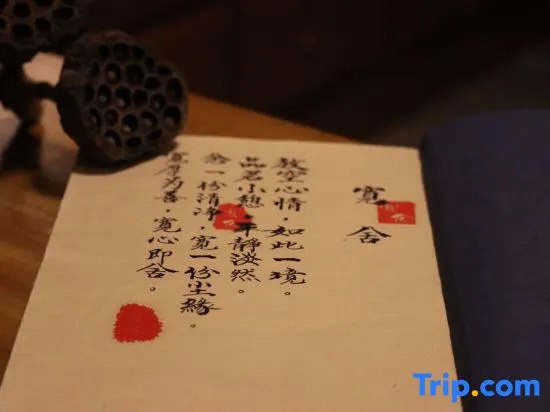 寬舍
空心情，如此一境。
品茗小憩，平靜淡然。
舍一份清净，寬一份尘緣。
寬厚为善，寬心即舍。
Trip.com